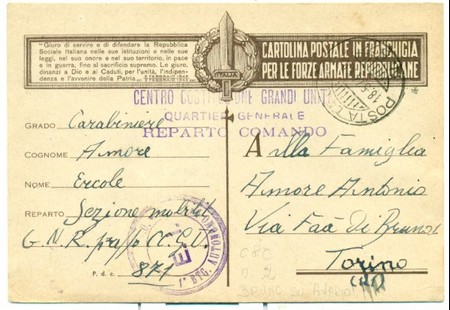 "Giuro di servire e di difendere la Repubblica
Sociale Italiana nelle sue istituzioni e nelle sue
leggi, nel suo onore e nel suo territorio, in pace
e in guerra, fino al sacrificio supremo. Lo giuro
dinanzi a Dio e ai Caduti, per l'unità, l'indipen-
denza e l'avvenire della Patria."
ITALIA
CARTOLINA POSTALE IN FRANCHIGIA
PER LE FORZE ARMATE REPUBBLICANE
CENTRO COSTITUZIONE GRANDI UNITÀ
QUARTIER GENERALE
REPARTO COMANDO
POSTA
18.5
GRADO Carabiniere
COGNOME Amore
NOME Ercole
REPARTO Sezione
G.N.R. presso CC.G.U.
P. d. c. 871
Alla Famiglia
Amore Antonio
Via Faà di Bruno
Torino